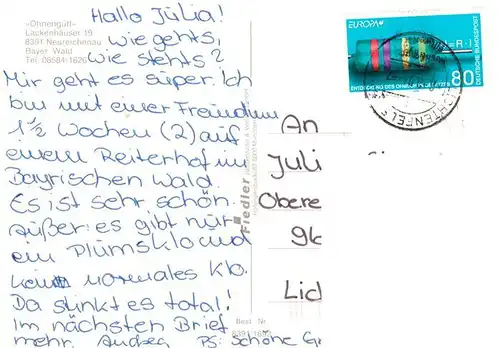 »Ohnengütl«
Lackenhäuser 19
8391 Neureichenau
Bayer. Wald
Tel. 08584-1626
Hallo Julia!
Wie gehts,
wie stehts?
Mir geht es super. Ich
bin mit einer Freundin
1 1/2 Wochen (2) auf
einem Reiterhof im
Bayrischen Wald.
Es ist sehr schön.
Außer: es gibt nur
ein Plumsklo und
kein normales Klo.
Da stinkt es total!
Im nächsten Brief
mehr. Andrea PS: Schöne Gr
Fiedler
Best Nr
8391 1693
EUROPA
ENTDECKUNG DES OHMSCHEN GESETZES
DEUTSCHE BUNDESPOST
80
CHTENFELS
An
Juli
Obere
96
Lid